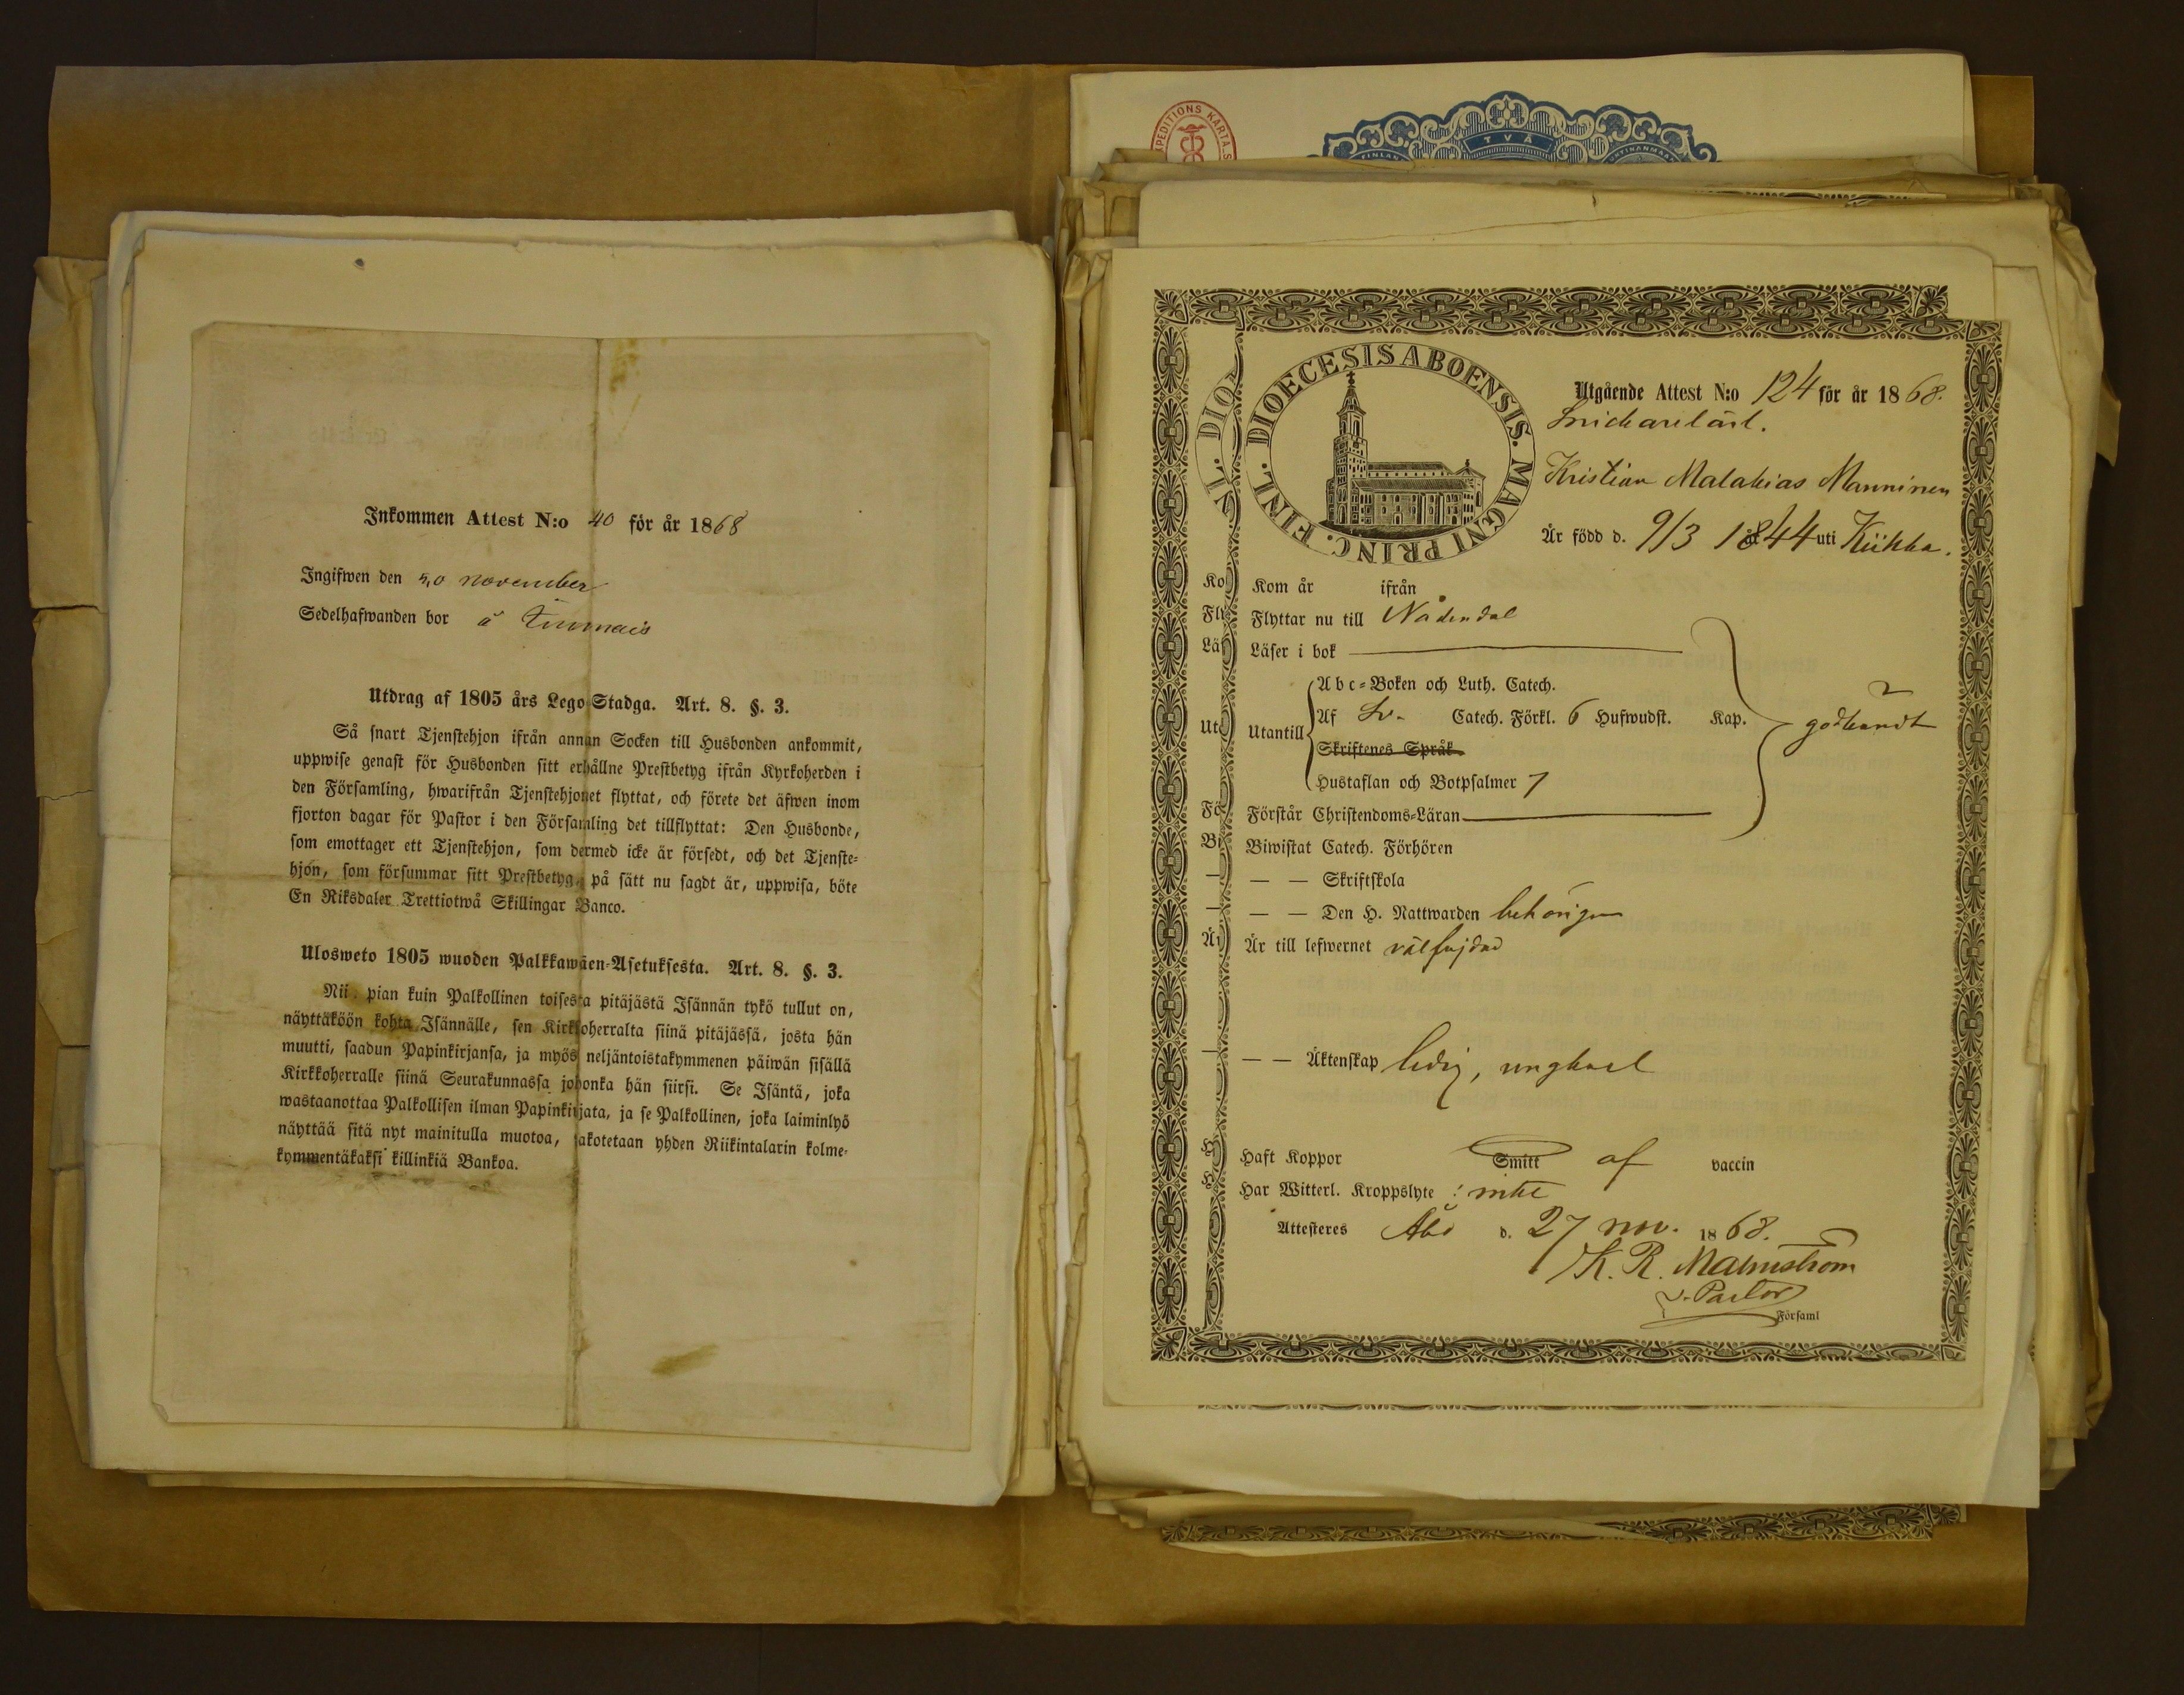 Inkommen Attest N:o 40 för år 1868
Ingifwen den november
Sedelhafwanden bor å
Utdrag af 1805 års Lego Stadga. Art. 8. §. 3.
Så snart Tjenstehjon ifrån annan Socken till Husbonden ankommit,
uppwise genast för Husbonden sitt erhållne Prestbetyg ifrån Kyrkoherden i
den Församling, hwarifrån Tjenstehjonet flyttat, och förete det äfwen inom
fjorton dagar för Pastor i den Församling det tillflyttat: Den Husbonde,
som emottager ett Tjenstehjon, som dermed icke är försedt, och det Tjenste-
hjon, som försummar sitt Prestbetyg, på sätt nu sagdt är, uppwisa, böte
En Riksdaler Trettiotwå Skillingar Banco.
Ulosweto 1805 wuoden Palkkawäen-Asetuksesta. Art. 8. §. 3.
Nii pian kuin Palkollinen toisesta pitäjästä Isännän tykö tullut on,
näyttäköön kohta Isännälle, sen Kirkkoherralta siinä pitäjässä, josta hän
muutti, saadun Papinkirjansa, ja myös neljäntoistakymmenen päiwän sisällä
Kirkkoherralle siinä Seurakunnassa johonka hän siirsi. Se Isäntä, joka
wastaanottaa Palkollisen ilman Papinkirjata, ja se Palkollinen, joka laiminlyö
näyttää sitä nyt mainitulla muotoa, sakotetaan yhden Riikintalarin kolme-
kymmentäkaksi killinkiä Bankoa.
EXPEDITIONS KARTA.S
TVÅ
FINLAN
L. DIO
FINL. DIOECESIS ABOENSIS. MAGNI PRINC.
Utgående Attest N:o 124 för år 1868.
Snickarelärl.
Kristian Malakias Manninen
Är född d. 9/3 1844 uti Kiikka.
Ko
Kom år ifrån
Fly
Flyttar nu till Nådendal
Läs
Läser i bok
Abc-Boken och Luth. Catech.
Af Sv. Catech. Förkl. 6 Hufwudst. Kap.
Uta
Utantill
godkändt
Skriftenes Språk
Hustaflan och Botpsalmer 7
Fö
Förstår Christendoms-Läran
Bi
Biwistat Catech. Förhören
— — Skriftskola
— — Den H. Nattwarden behörigen
Är
Är till lefwernet välfrejdad
— — Äktenskap ledig, ungkarl
H
Haft Koppor Smitt af vaccin
H
Har Witterl. Kroppslyte : intet
Attesteres Åbo d. 27 nov. 1868.
K. R. Malmström
v. Pastor
Församl